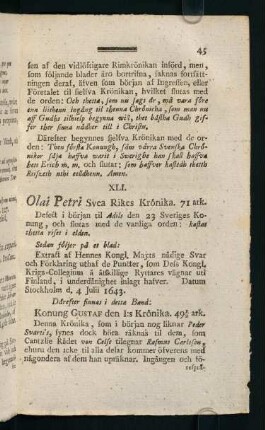 45
sen af den vidlöftigare Rimkrönikan införd, men,
som följande blader äro bortrifna, saknas fortsätt-
ningen deraf, äfven som början af Ingressen, eller
Företalet til sjelfva Krönikan, hvilket slutas med
de orden: Och thetta, som nu sagt är, må vara före
een lithenn ingång til thenna Chrönicka, som man nu
aff Gudhs tilhielp begynna wil, thet hålfha Gudh gif-
fer ther sinna nådher till i Christo.
Därefter begynnes sjelfva Krönikan med de or-
den: Then första Konungh, såm vårra Swenska Chrö-
nikor säja haffva warit i Swerighe han skall haffva
heet Erich m. m, och slutat; som haffver hafft
 Amen.
XLI.
Olai Petri Svea Rikes Krönika. 71 ark.
Defect i början til Adils den 23 Sveriges Ko-
nung, och slutas med de vanliga orden: kastar
thetta riset i elden.
Sedan följer på et blad:
Extract af Hennes Kongl. Majts nådige Svar
och Förklaring uthaf de Puncter, som Dess Kongl.
Krigs-Collegium å åtskillige Ryttares vägnar uti
Finland, i underdånighet inlagt hafver. Datum
Stockholm d. 4 Julii 1643.
Därefter finnas i detta Band:
Konung Gustaf den I:s Krönika. 49½ ark.
Denna Krönika, som i början nog liknar Peder
Svart's, synes dock höra räknas til dem, som
Cantzlie Rådet von Celse tilegnar Rasmus Carlsson,
ehuru den icke til alla delar kommer öfverens med
någondera af dem han upräknar. Ingången och fö-